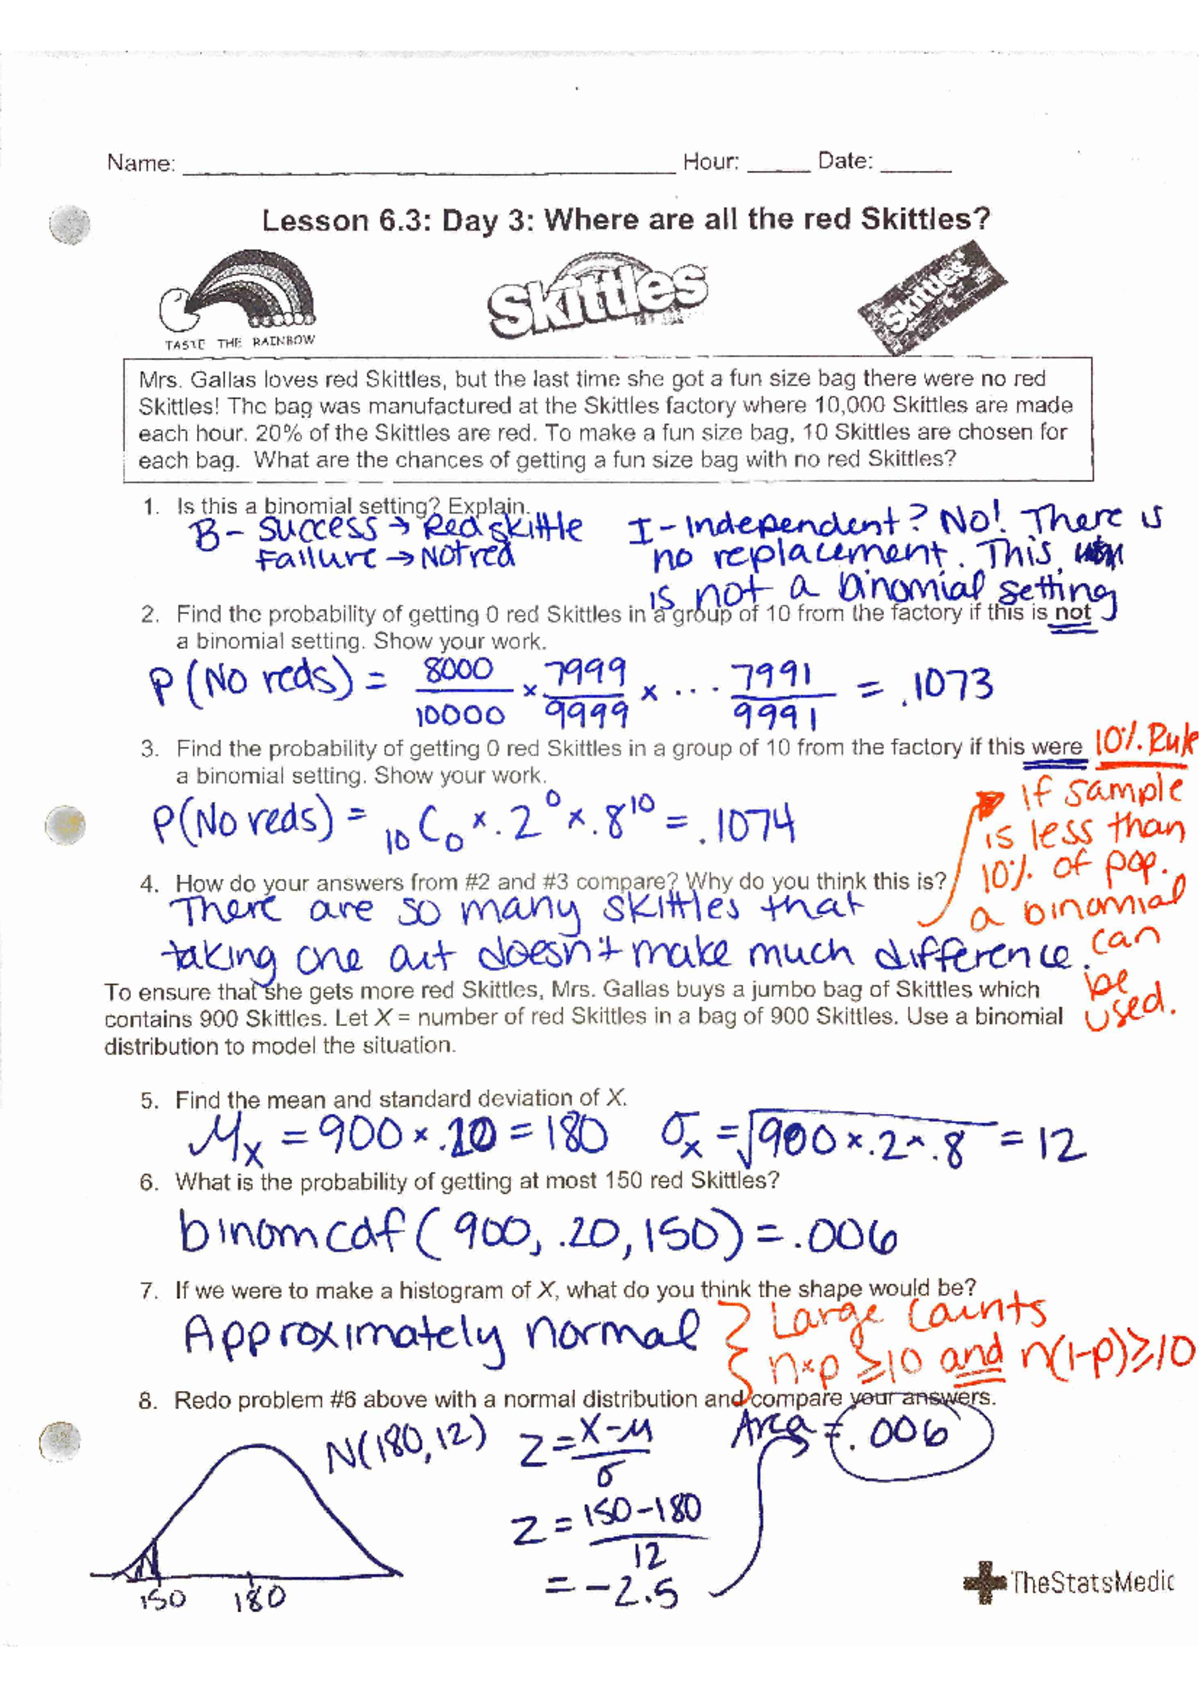 Name: ____ Hour: ____ Date: ____
Lesson 6.3: Day 3: Where are all the red Skittles?
TASTE THE RAINBOW
Skittles
Skittles
Mrs. Gallas loves red Skittles, but the last time she got a fun size bag there were no red
Skittles! The bag was manufactured at the Skittles factory where 10,000 Skittles are made
each hour. 20% of the Skittles are red. To make a fun size bag, 10 Skittles are chosen for
each bag. What are the chances of getting a fun size bag with no red Skittles?
1. Is this a binomial setting? Explain.
B - Success → Red skittle
Failure → Not red
I - Independent? No! There is
no replacement. This
is not a binomial setting
2. Find the probability of getting 0 red Skittles in a group of 10 from the factory if this is not
a binomial setting. Show your work.
P(No reds) = 8000/10000 × 7999/9999 × ... 7991/9991 = .1073
3. Find the probability of getting 0 red Skittles in a group of 10 from the factory if this were
a binomial setting. Show your work.
P(No reds) = 10C0 × .2^0 × .8^10 = .1074
10% Rule
if sample
is less than
10% of pop.
a binomial
can
be
used.
4. How do your answers from #2 and #3 compare? Why do you think this is?
There are so many skittles that
taking one out doesn't make much difference.
To ensure that she gets more red Skittles, Mrs. Gallas buys a jumbo bag of Skittles which
contains 900 Skittles. Let X = number of red Skittles in a bag of 900 Skittles. Use a binomial
distribution to model the situation.
5. Find the mean and standard deviation of X.
μx = 900 × .20 = 180 σx = √900 × .2 × .8 = 12
6. What is the probability of getting at most 150 red Skittles?
binomcdf(900, .20, 150) = .006
7. If we were to make a histogram of X, what do you think the shape would be?
Approximately normal
Large Counts
n×p ≥ 10 and n(1-p) ≥ 10
8. Redo problem #6 above with a normal distribution and compare your answers.
N(180, 12)
z = x-μ/σ
z = 150-180/12
= -2.5
Area = .006
150 180
TheStatsMedic